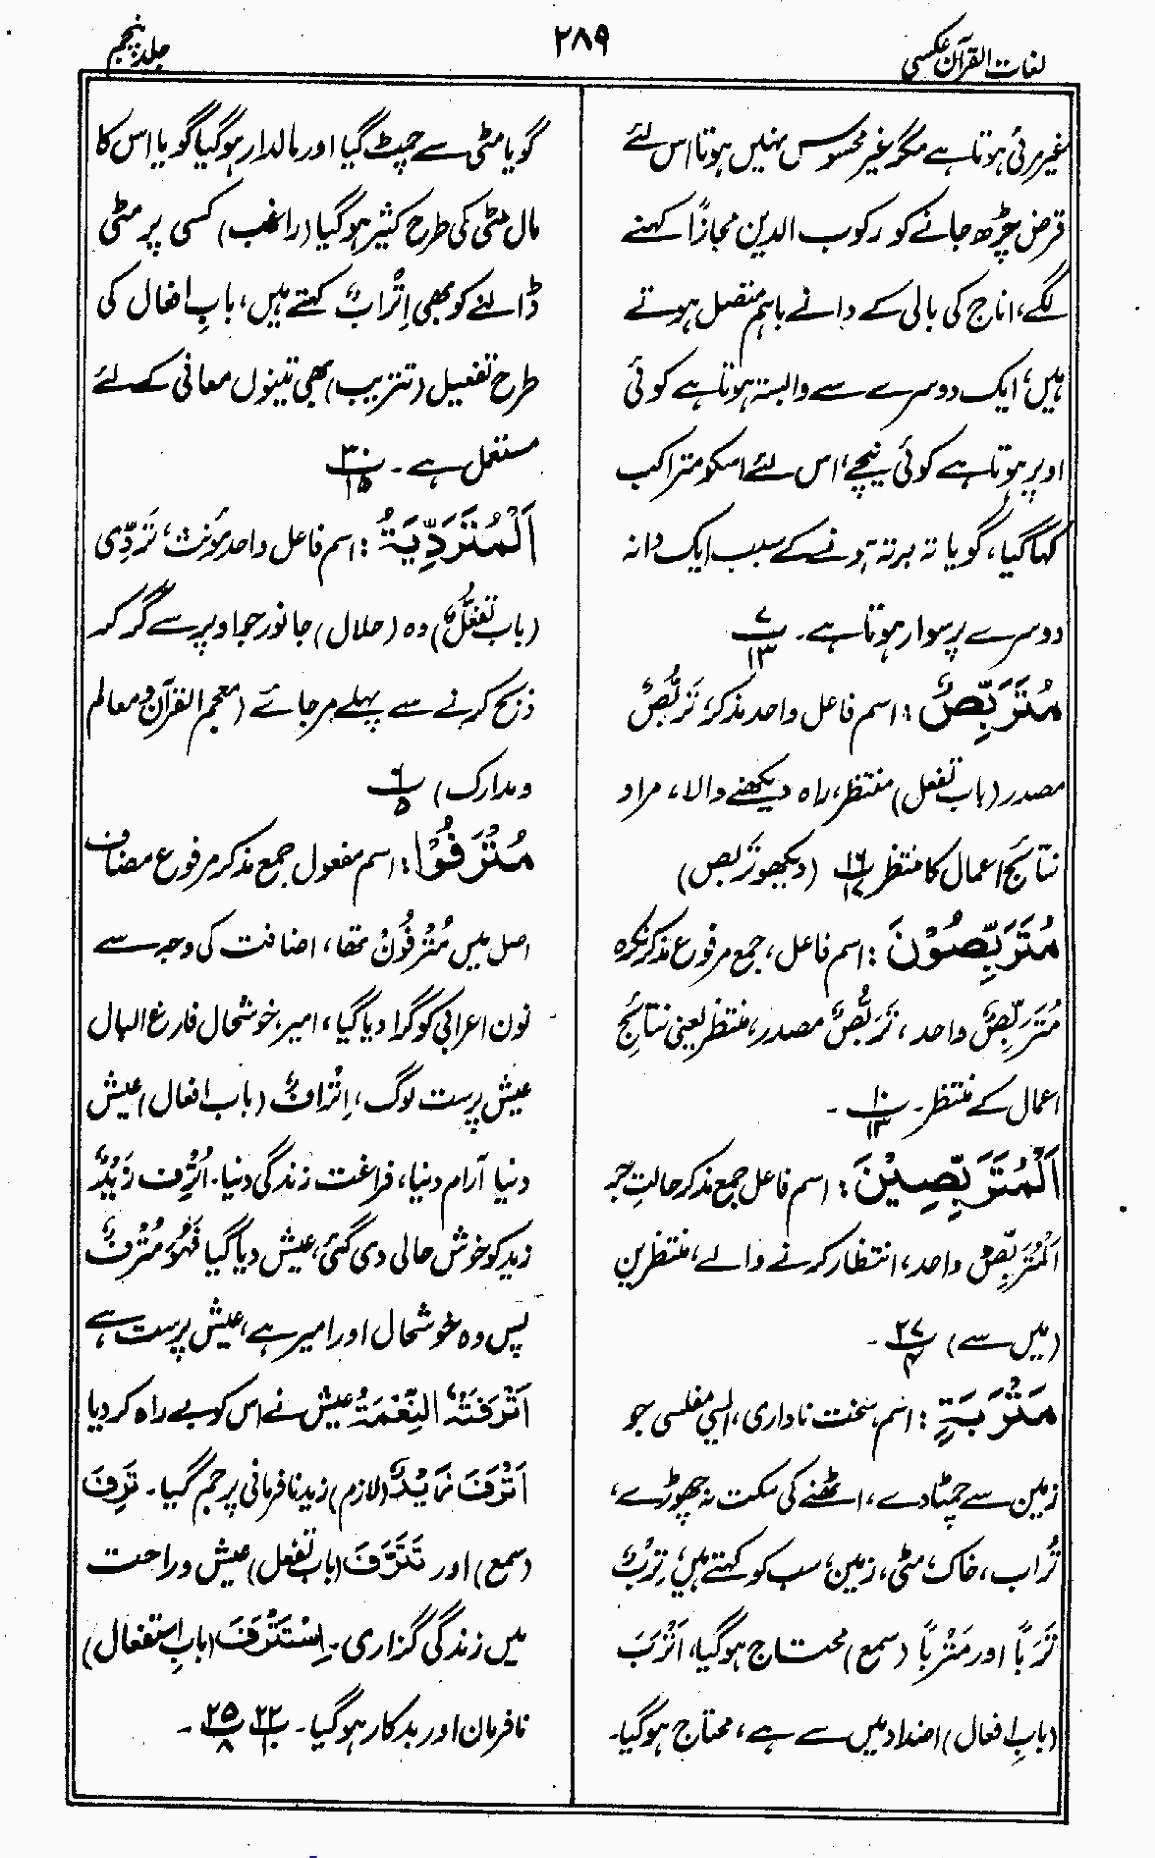 لغات القرآن عکسی
۲۸۹
جلد پنجم
غیر مرئی ہوتا ہے مگر غیر محسوس نہیں ہوتا اس لئے
قرض چڑھ جانے کو رکوب الدین مجازًا کہنے
لگے، اناج کی بالی کے دانے باہم متصل ہوتے
ہیں، ایک دوسرے سے وابستہ ہوتا ہے کوئی
اوپر ہوتا ہے کوئی نیچے، اس لئے اسکو متراکب
کہا گیا، گویا تہ برتہ ہونے کے سبب ایک دانہ
دوسرے پر سوار ہوتا ہے۔ پ ۷ / ۱۳
مُتَرَبِّصٌ: اسم فاعل واحد مذکر، تَرَبُّصٌ
مصدر (باب تفعل) منتظر، راہ دیکھنے والا، مراد
نتائج اعمال کا منتظر پ ۱۶ / ۱۷ (دیکھو تربص)
مُتَرَبِّصُوْنَ: اسم فاعل، جمع مرفوع مذکر نکرہ
مُتَرَبِّصٌ واحد، تَرَبُّصٌ مصدر، منتظر یعنی نتائج
اعمال کے منتظر۔ پ ۱۰ / ۱۳ -
اَلْمُتَرَبِّصِیْنَ: اسم فاعل جمع مذکر حالتِ جر
اَلْمُتَرَبِّصُ واحد، انتظار کرنے والے، منتظرین
(میں سے) پ ۲۷ / ۴ -
مَتْرَبَۃٍ: اسم، سخت ناداری، ایسی مفلسی جو
زمین سے چمٹا دے، اٹھنے کی سکت نہ چھوڑے،
تُراب، خاک، مٹی، زمین، سب کو کہتے ہیں، تِرْبٌ
تَرَبًا اور مَتْرَبًا (سمع) محتاج ہوگیا، اَتْرَبَ
(بابِ افعال) اضداد میں سے ہے، محتاج ہوگیا۔
گویا مٹی سے چمٹ گیا اور مالدار ہوگیا گویا اس کا
مال مٹی کی طرح کثیر ہوگیا (راغب) کسی پر مٹی
ڈالنے کو بھی اِتْرَابٌ کہتے ہیں، بابِ افعال کی
طرح تفعیل (تتریب) بھی تینوں معانی کے لئے
مستعمل ہے۔ پ ۳۰ / ۱۵
اَلْمُتَرَدِّیَۃُ: اسم فاعل واحد مؤنث، تَرَدِّی
(باب تفعُّل) وہ (حلال) جانور جو اوپر سے گر کر
ذبح کرنے سے پہلے مر جائے (معجم القرآن و معالم
و مدارک) پ ۶ / ۵
مُتْرَفُوْا: اسم مفعول جمع مذکر مرفوع مضاف
اصل میں مُتْرَفُوْنَ تھا، اضافت کی وجہ سے
نون اعرابی کو گرا دیا گیا، امیر، خوشحال فارغ البال
عیش پرست لوگ، اِتْرَافٌ (باب افعال) عیش
دنیا آرام دنیا، فراغت زندگی دنیا۔ اُتْرِفَ زَیْدٌ
زید کو خوش حالی دی گئی، عیش دیا گیا فَہُوَ مُتْرَفٌ
پس وہ خوشحال اور امیر ہے، عیش پرست ہے
اَتْرَفَتْہُ النِّعْمَۃُ عیش نے اس کو بے راہ کر دیا
اَتْرَفَ زَیْدٌ (لازم) زید نافرمانی پر جم گیا۔ تَرِفَ
(سمع) اور تَتَرَّفَ (باب تفعل) عیش و راحت
میں زندگی گزاری۔ اِسْتَتْرَفَ (بابِ استفعال)
نافرمان اور بدکار ہوگیا۔ پ ۲۲ / ۱۰ پ ۲۵ / ۸ -